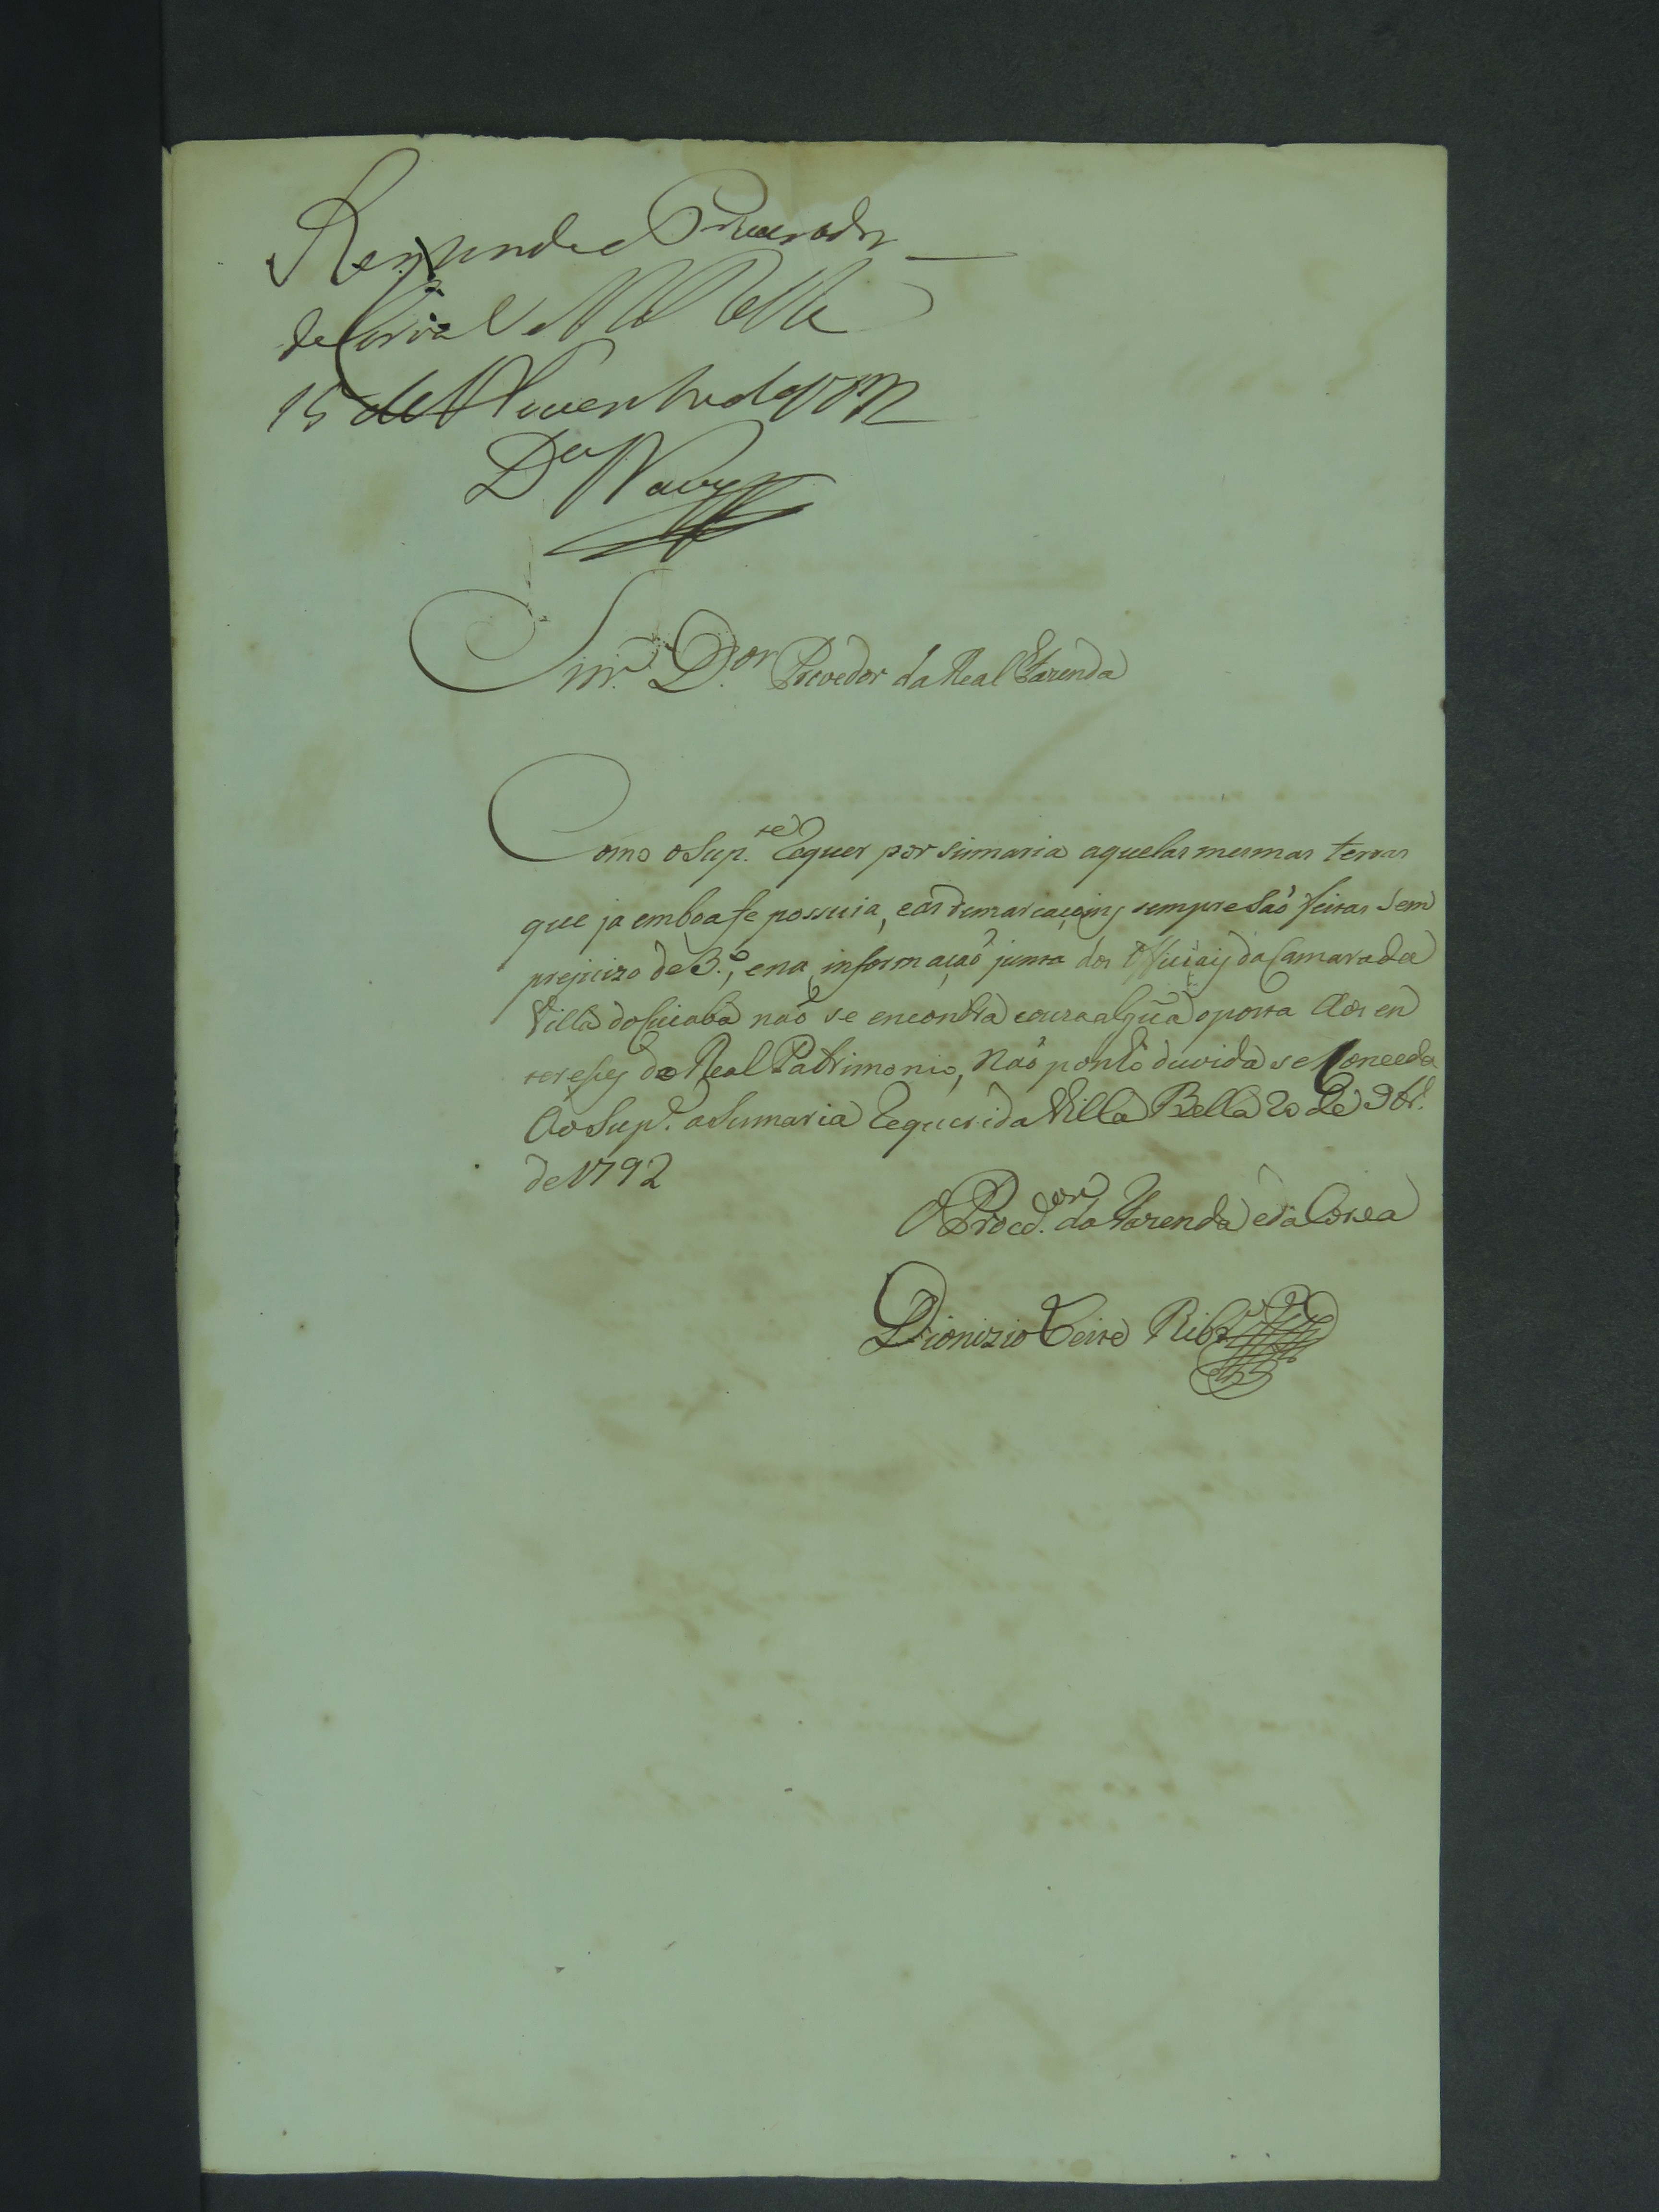 Responda o Procurador
da Coroa Villa Bella
15 de Novembro de 1792
D.or Navy
Snr. D.or Provedor da Real Fazenda
Como o Sup.te Requer por sismaria aquelas mesmas terras
que ja em boa fe possuia, e as demarcaçoins sempre Saõ feitas Sem
prejuizo de 3.º, e na informaçaõ junta dos Officiais da Camara da
Villa do Cuiabá naõ se encontra couza algũa oposta Aos en
teresses do Real Patrimonio, Naõ ponho duvida se Conceda
Ao Sup.e a Sismaria Requerida Villa Bella 20 de 9br.
de 1792
O Procd.or da Fazenda e da Coroa
Dionizio Leite Ribr.o